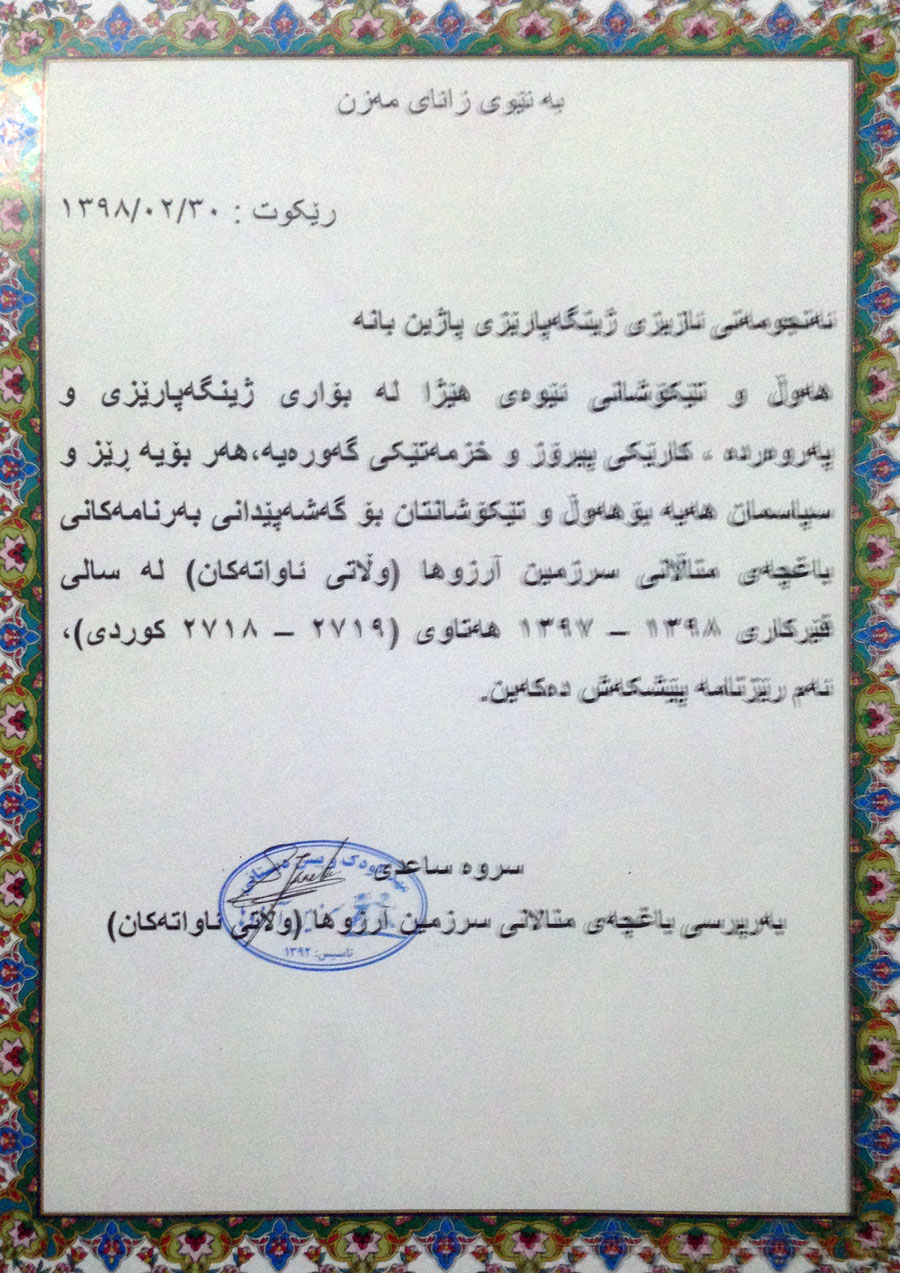 بە نێوی زانای مەزن
رێکوت : ١٣٩٨/٠٢/٣٠
ئەنجومەنی ئازیزی ژینگەپارێزی پاژین بانە
هەوڵ و تێکۆشانی ئێوەی هێژا لە بۆاری ژینگەپارێزی و
پەروەردە ، کارێکی پیرۆز و خزمەتێکی گەورەیە،هەر بۆیە ڕێز و
سپاسمان هەیە بۆهەوڵ و تێکۆشانتان بۆ گەشەپێدانی بەرنامەکانی
باغچەی مناڵانی سرزمین آرزوها (وڵاتی ئاواتەکان) لە سالی
فێرکاری ١٣٩٨ – ١٣٩٧ هەتاوی (٢٧١٩ – ٢٧١٨ کوردی)،
ئەم رێزنامە پێشکەش دەکەین.
سروە ساعدی
بەرپرسی باغچەی منالانی سرزمین آرزوها (وڵاتی ئاواتەکان)
تاسیس: ١٣٩٢